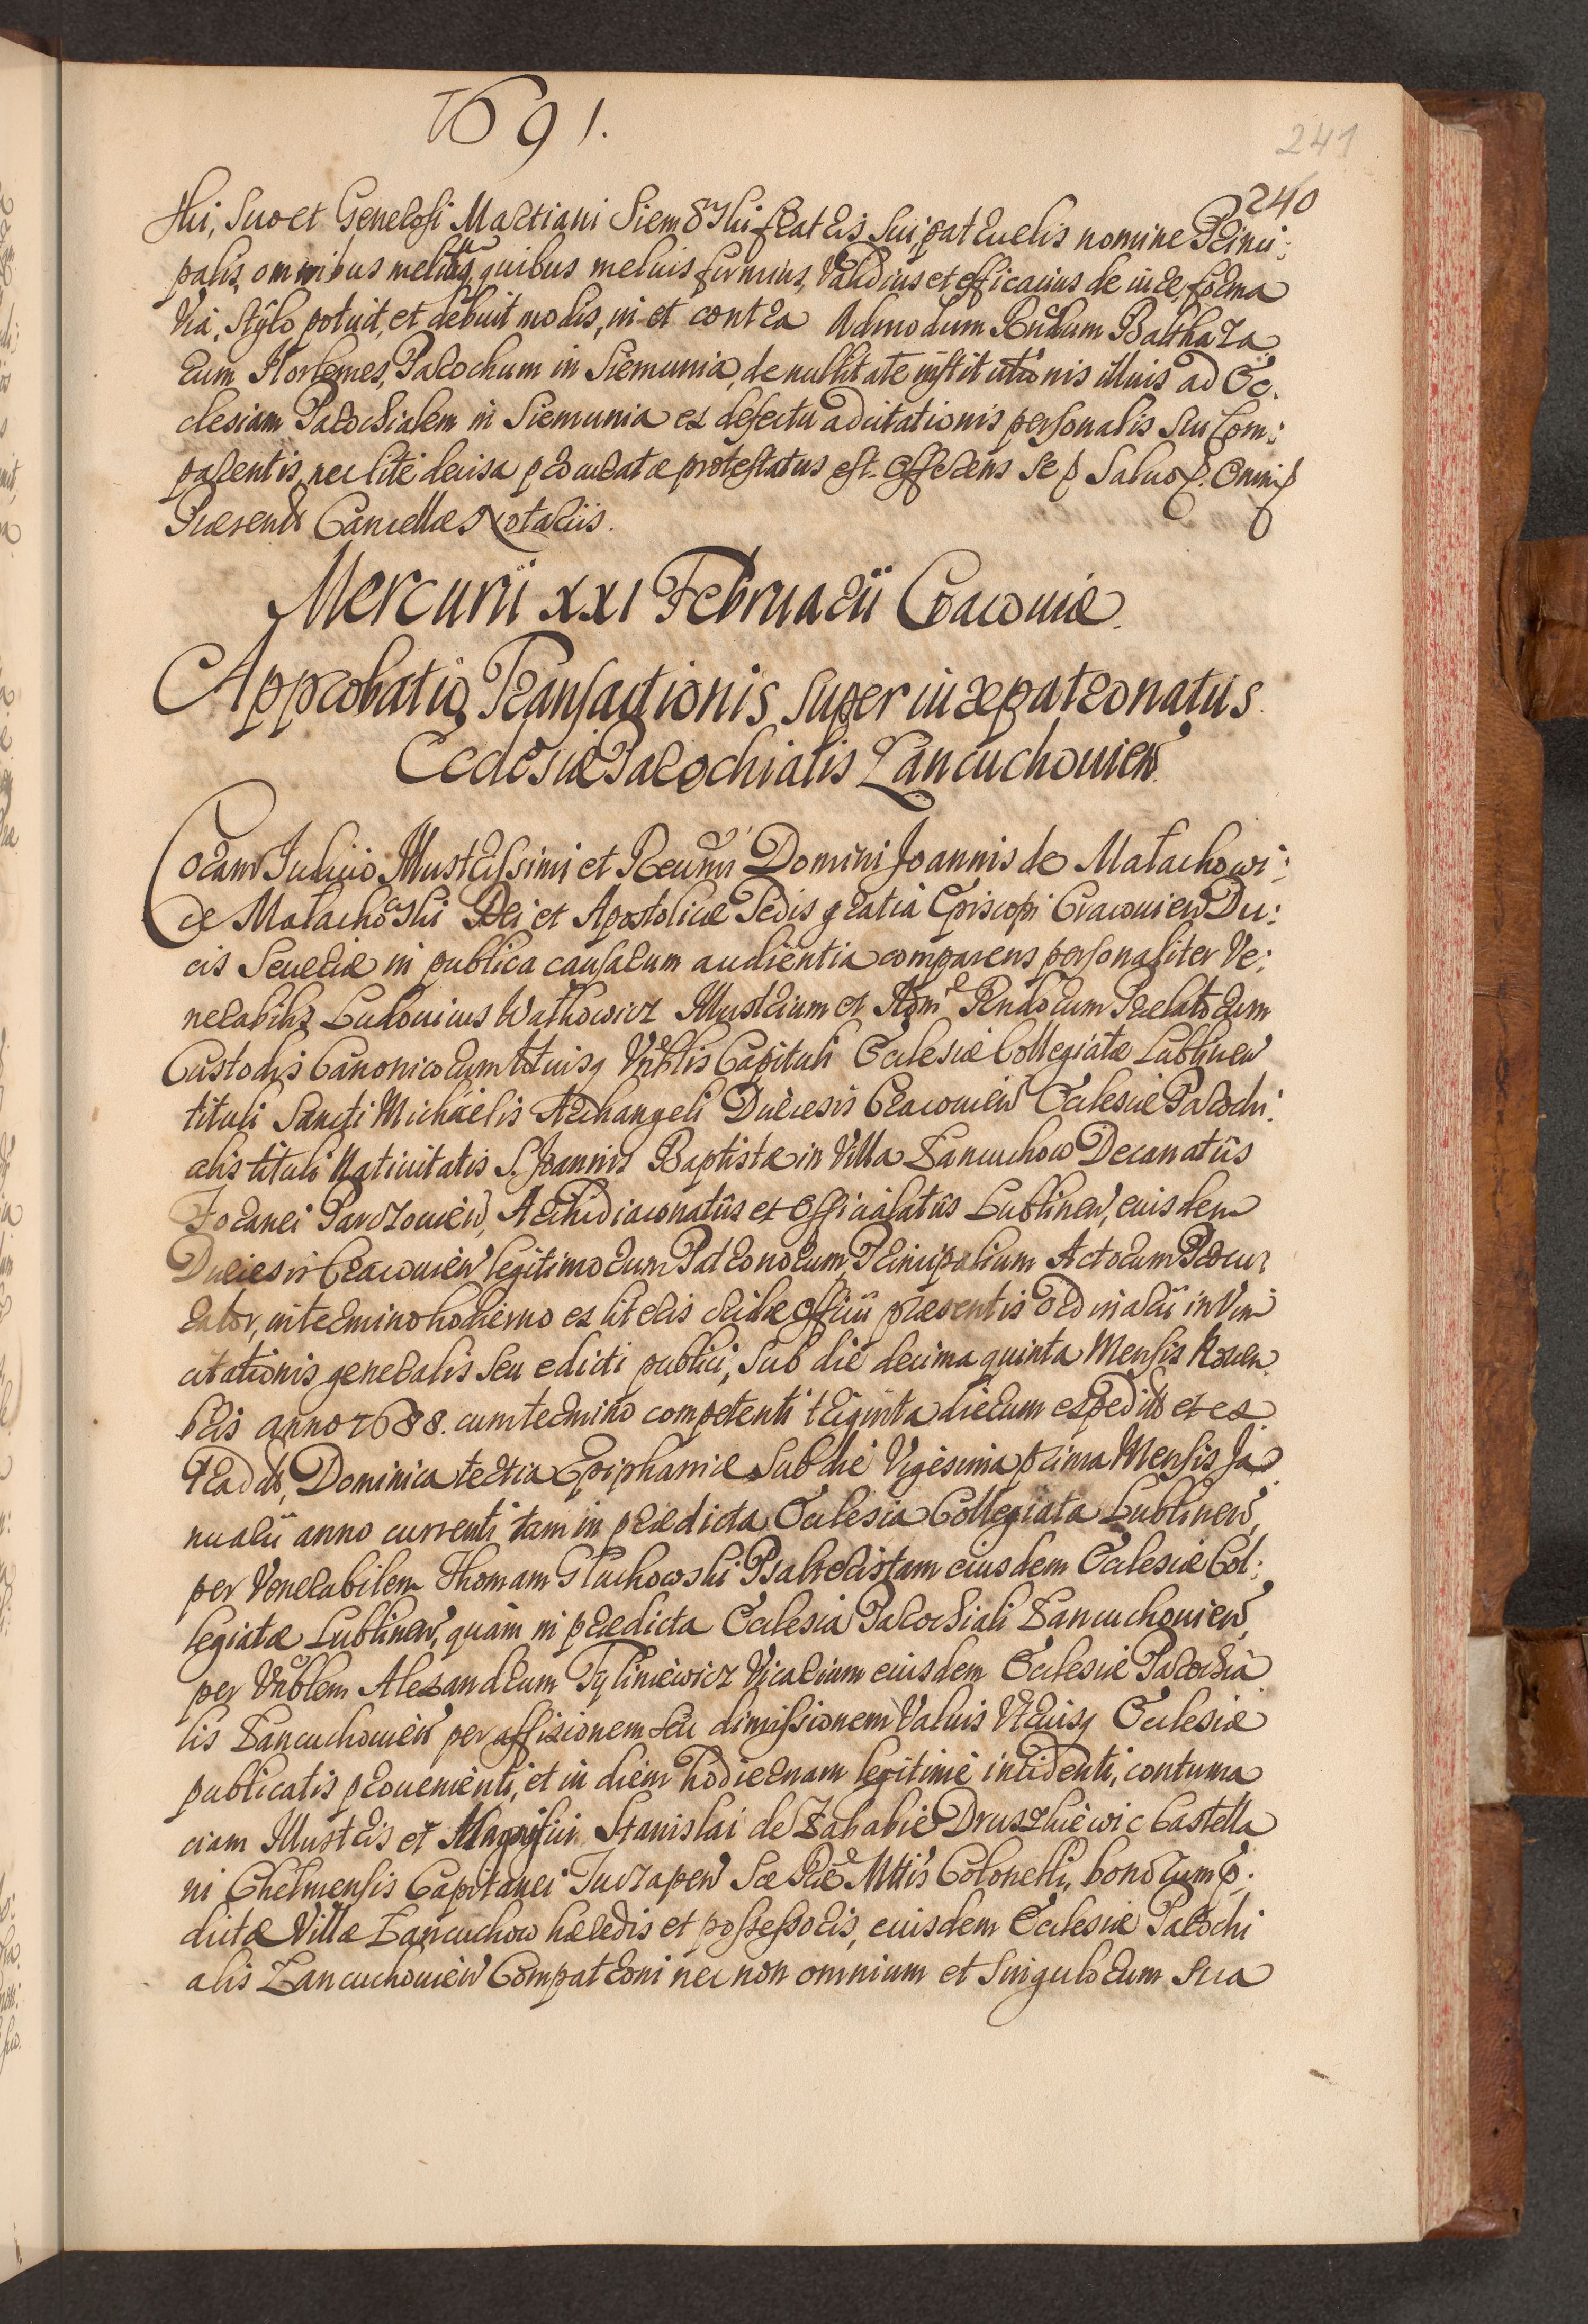 1691.
241
240
ski, suo et Generosi Martiani Siemoski fratris sui patruelis nomine Princi:
palis, omnibus melius, quibus melius firmius, validius et efficacius de iure, forma
via, stylo potuit, et debuit modis, in et contra Admodum Rndum Balthaza
rum Parochum in Siemunia, de nullitate institutionis illius ad Ec.
clesiam Parochialem in Siemunia ex defectu adcitationis personalis seu Com:
parentis, nec lite decisa procuratae protestatus est. Offerens se p Saluo p. Omni p
Praesentib Cancellae Notariis.
Mercurii XXI Februarii Cracouiae.
Approbatio Transactionis super iure patronatus
Ecclesiae Parochialis Lancuchouien
Coram Iudicio Illustrissimi et Reumi Domini Joannis de Małachowi:
ce Małachowski Dei et Apostolicae Sedis gratia Episcopi Cracouien Du:
cis Seueriae in publica causarum audientia comparens personaliter Ve:
nerabilis Ludouicus Watkowicz Illustrium et Adm Rndorum Praelatorum
Custodis Canonicorum totiusq Vnblis Capituli Ecclesiae Collegiatae Lublinen
tituli Sancti Michaelis Archangeli Diaecesis Cracouien Ecclesiae Parochi:
alis tituli Natiuitatis S. Joannis Baptistae in Villa Lancuchow Decanatus
Foranei Parczouien, Archidiaconatus et Officialatus Lublinen, eiusdem
Diaecesis Cracouien legitimorum Patronorum, Principalium Actorum Procu
rator, in termino hodierno ex literis cridae Officii praesentis Ordinarii in Vim
citationis generalis seu edicti publici, sub die decima quinta Mensis Nouem
bris anno 1688. cum termino competenti triginta dierum expeditis et ex
traditis, Dominica tertia Epiphaniae sub die Vigesima prima Mensis Ja
nuarii anno currenti tam in praedicta Ecclesia Collegiata Lublinen,
per Venerabilem Thomam Głuchowski Psalteristam eiusdem Ecclesiae Col:
legiatae Lublinen, quam in praedicta Ecclesia Parochiali Lancuchouien,
per Vnblem Alexandrum Tyliniewicz Vicarium eiusdem Ecclesiae Parochia
lis Lancuchouien per affixionem seu dimissionem Valuis Vtriusq Ecclesiae
publicatis prouenienti, et in diem hodiernam legitime incidenti, contuma
ciam Illustris et Magnifici Stanislai de Zababie Druszkiewic Castella
ni Chelmensis Capitanei Jurzapen Sae Rae Mttis Colonelli, bonorum p.
dictae Villae Lancuchow haeredis et possessoris, eiusdem Ecclesiae Parochi
alis Lancuchouien Compatroni nec non omnium et singulorum sua